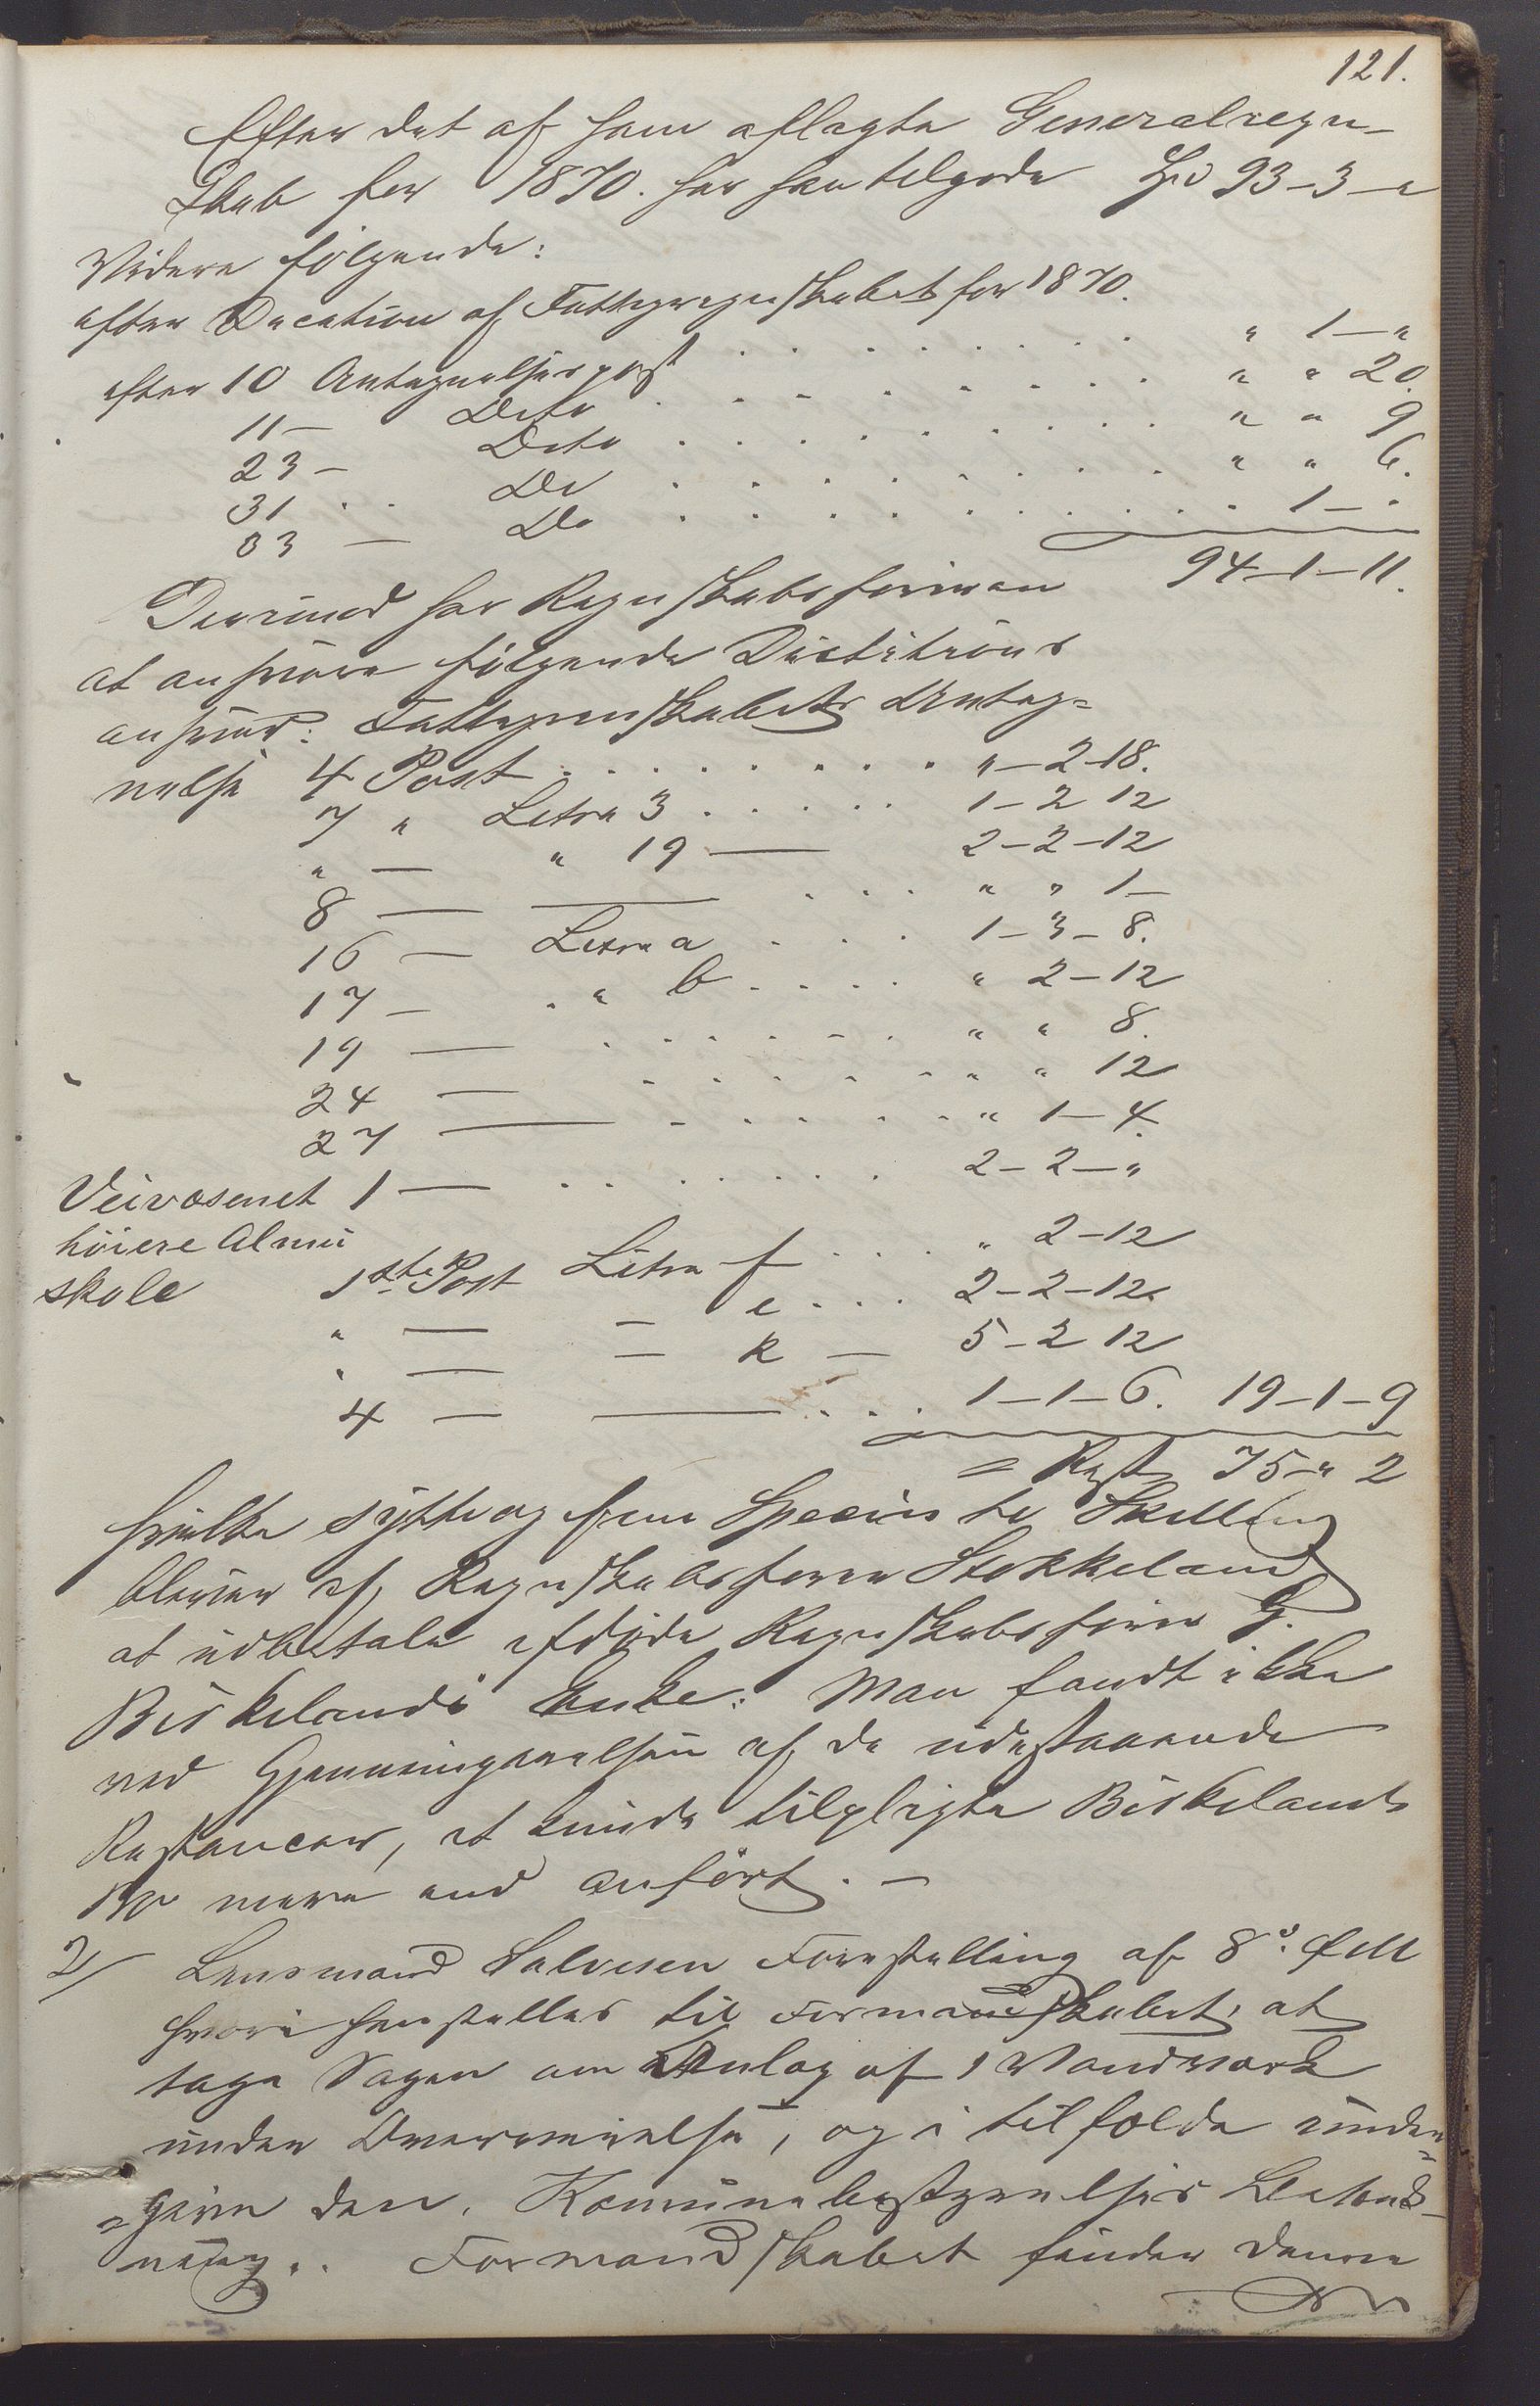 121.
Efter det af ham aflagte Generalregn-
skab for 1870. har han tilgode Spd 93-3-"
Videre følgende:
efter Decation af Fattigregnskabet for 1870.
efter 10 Antegnelsespost . . . . . . . . " 1-"
11- Dito . . . . . . . . " " 20.
23- Dito . . . . . . . . " " 9
31 . . Do . . . . . . . . " " 6.
33 — Do . . . . . . . . 1-"
94-1-11.
Derimod har Regnskabsføreren
at ansvare følgende Decititions
ansvar: Fattigvæsenskabets Anteg=
nelse 4 Post . . . . . . . . "-2-18.
7 " Litra 3 . . . . . 1-2 12
" — " 19 — 2-2-12
8 — — . . . " " 1-
16 — Litra a . . . 1-3-8.
17 — . " b . . . . " 2-12
19 — . . . . . . " " 8.
24 — . . . . . . " " 12
27 — . . . . . " 1-4.
Veivæsenet 1 — . . . . . . . 2-2-"
høiere Almu
skole 1ste Post Litra f . . . . " 2-12
" — — e . . . 2-2-12.
" — — k — 5-2 12
4 — — . . . . 1-1-6. 19-1-9
= Rest 75-" 2
hvilke sytti og fem Species to Skilling
bliver af Regnskabsfører Stokkeland
at udbetale afdøde Regnskabsfører G.
Birkelands Enke: Man fandt ikke
ved Gjennemgaaelsen af de udestaaende
Restancer, at kunde tilpligte Birkelands
Bo mere end anført. —
2/ Lensmand Salvesen Forestilling af 8de. Febr
hvori henstilles til Formandskabet, at
tage Sagen om Anlæg af 1 Vandværk
under Overveielse, og i tilfælde under=
=give den Kommunebestyrelsens Betænk-
ning.. Formandskabet finder denne